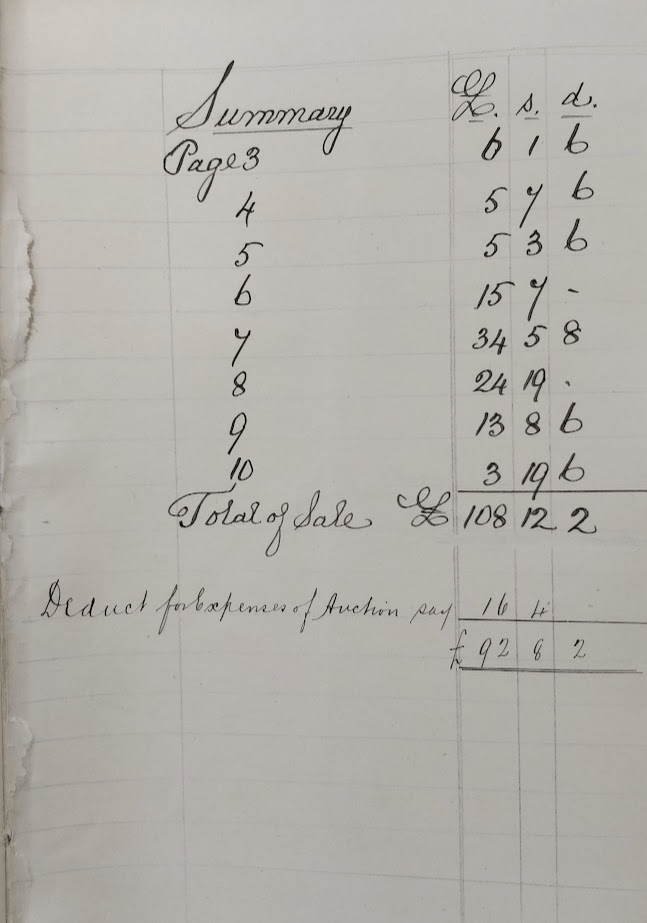 Summary £. s. d.
Page 3 6 1 6
4 5 7 6
5 5 3 6
6 15 7 -
7 34 5 8
8 24 19 .
9 13 8 6
10 3 19 6
Total of Sale £ 108 12 2
Deduct for Expenses of Auction say 16 4 -
£ 92 8 2